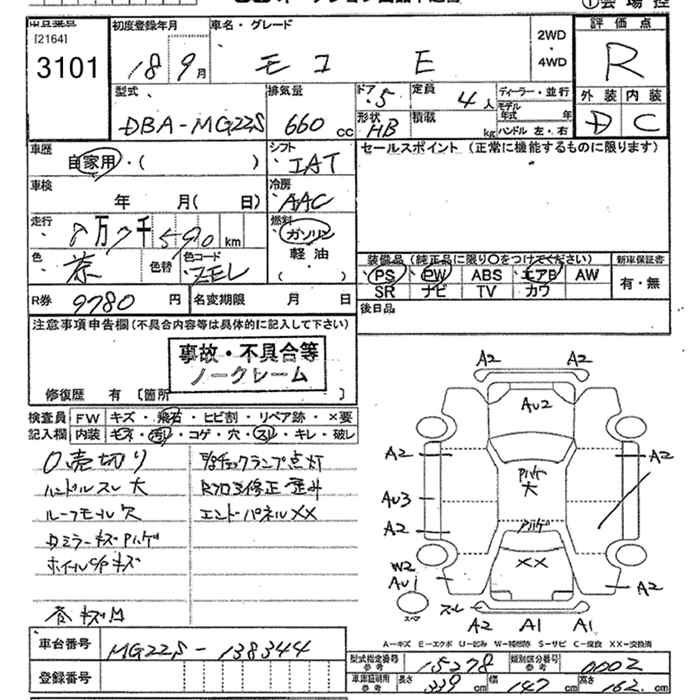 [2164]
3101
初度登録年月
18 9月
車名・グレード
モコ E
2WD
・
4WD
評価点
R
外装 内装
D C
型式
DBA-MG22S
排気量
660 cc
ドア・5
形状 HB
定員 4人
積載 kg
ディーラー・並行
モデル年式 年
ハンドル 左・右
車歴
自家用・( )
シフト
IAT
セールスポイント (正常に機能するものに限ります)
車検
年 月( 日)
冷房
AAC
走行
8万7千590km
燃料
ガソリン
軽油
・( )
色
茶
色替
色コード
ZEL
装備品 (純正品に限り○をつけてください)
PS PW ABS エアB AW
SR ナビ TV カワ
新車保証書
有・無
R券 9780円
名変期限 月 日
後日品
注意事項申告欄(不具合内容等は具体的に記入して下さい)
事故・不具合等
ノークレーム
修復歴 有 [箇所 ]
検査員 FW キズ・飛石・ヒビ割・リペア跡・×要
記入欄 内装 キズ・汚れ・コゲ・穴・スレ・キレ・破レ
売切り
ハンドルスレ大
ルーフモール欠
ホイールC/Pキズ
チェックランプ点灯
エンドパネルXX
A2 A2
AU2
A2 A2
AU3
A2
大
XX
W2
AU1
スレ
A2
A2 A1 A1
スペア
A-キズ E-エクボ U-凹み W-補修跡 S-サビ C-腐食 XX-交換済
車台番号 MG22S-138344
登録番号
型式指定番号 参考 15278
類別区分番号 参考 0002
車庫証明用 参考 長さ 339cm 幅 147cm 高さ 162cm